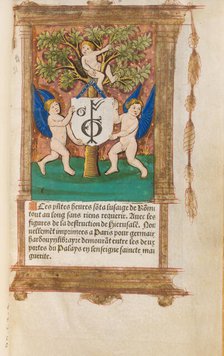 Les p̄ñtes heures sõt a lusaige de Rõme
tout au long sans riens requerir. Auec les
figures de la destruction de Hierusalẽ. Nou
uellemẽt imprimees a Paris pour germain
hardouyn libraire demourãt entre les deux
portes du Palays en lenseigne saincte mar
guerite.